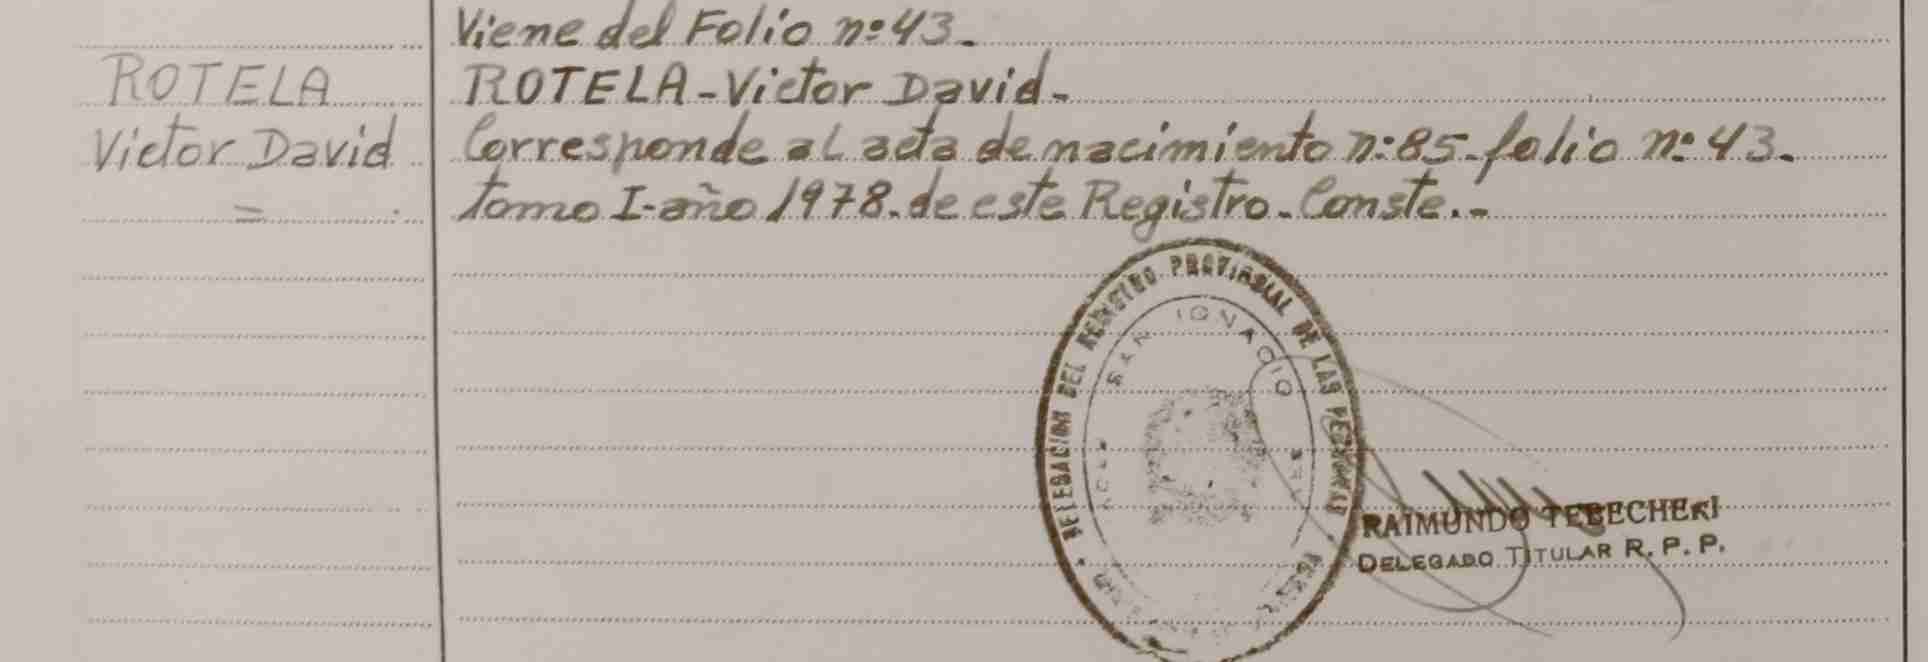 Viene del Folio nº 43.
ROTELA
Victor David
=
ROTELA - Victor David -
Corresponde al acta de nacimiento nº 85 - folio nº 43.
tomo I - año 1978. de este Registro. Conste. -
DELEGACION DEL REGISTRO PROVINCIAL DE LAS PERSONAS
SAN IGNACIO
RAIMUNDO TEBECHERI
DELEGADO TITULAR R. P. P.